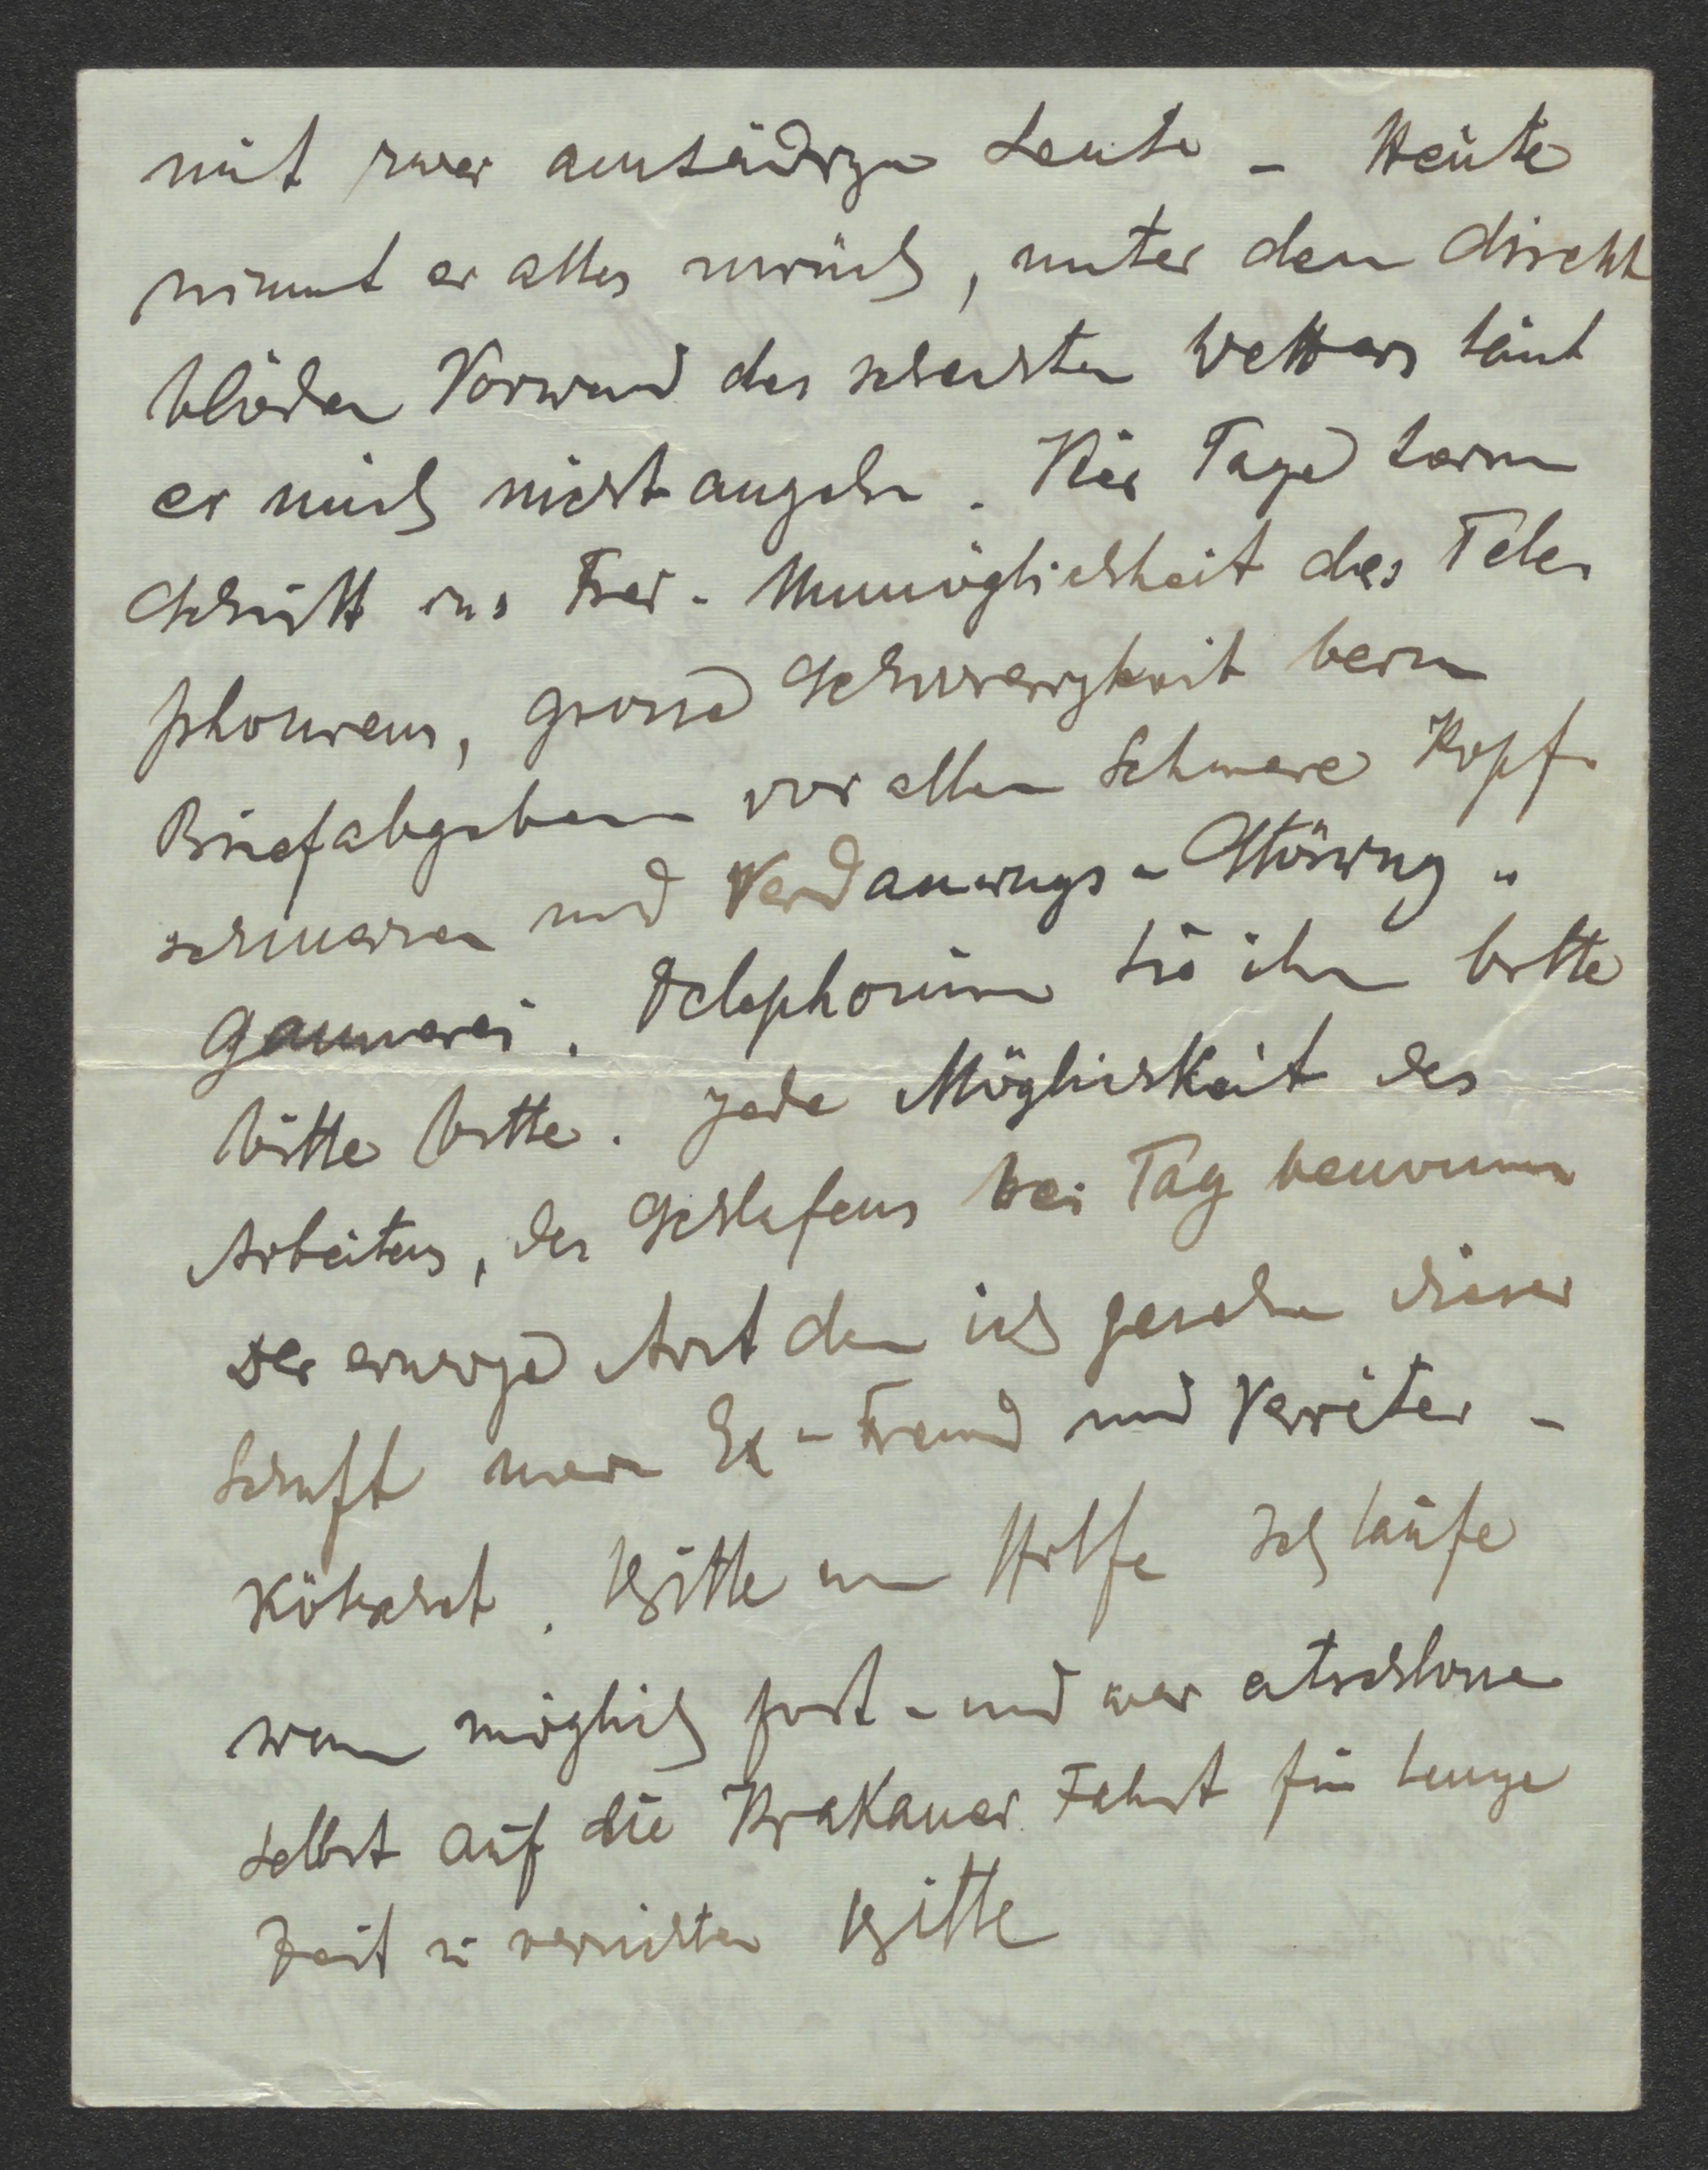 mit zwei anständigen Leute – Heute
nimmt er alles zurück, unter dem direkt
blöden Vorwand des schlechten Wetters läut
er mich nicht ausgehn. Vier Tage kein
Schritt ins Frei. Unmöglichkeit des Tele-
phonierens, grosse Schwierigkeit beim
Briefabgeben vor allem Schwere Kopf-
schmerzen und Verdauungs-Störung.
Gaunerei. Telephonieren Sie ihm bitte
bitte bitte. Jede Möglichkeit des
Arbeitens, des Schlafens bei Tag benommen
Der einzige Arzt den ich gesehn dieser
Schuft mein Ex-Freund und Verräter –
Bitte um Hilfe Ich laufe
wenn möglich fort – und war entschlossen
selbst auf die Krakauer Fahrt für lange
Zeit zu verzichten Bitte